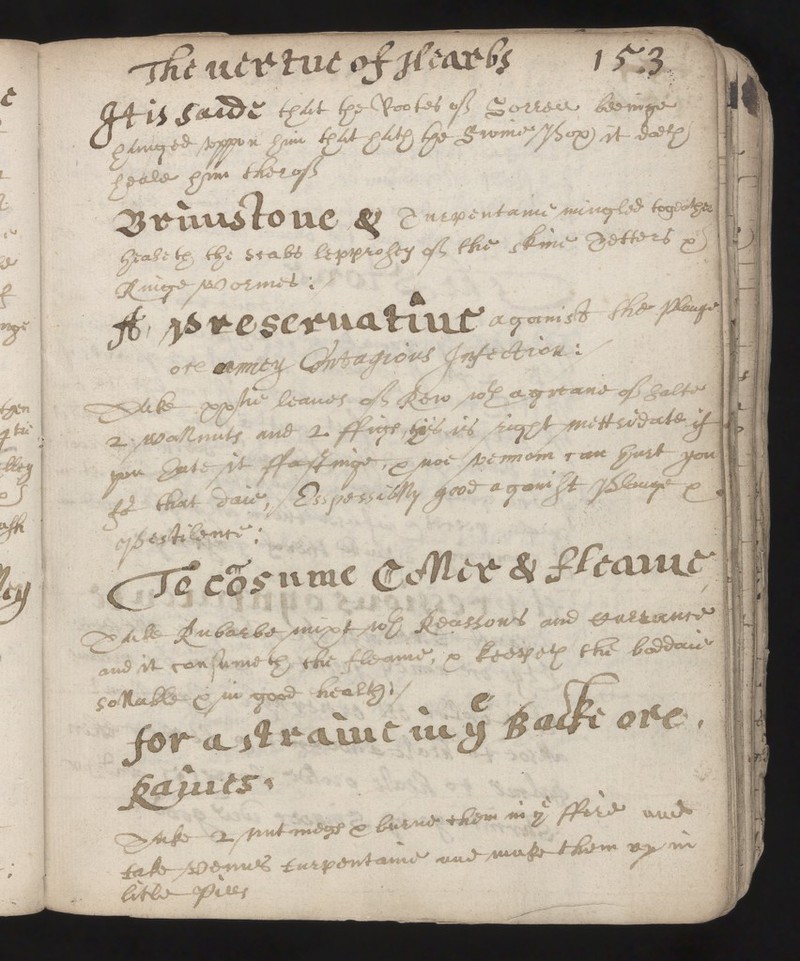 The vertue of Hearbs 153
It is saide that the Rootes of Sorrell beeinge
hanged uppon him that hath the Swine Pox it doeth
heale him therof
Brimstone & Turpentaine mingled togeather
healeth the scabs lepprosey of the skine Tetters &
Ringe wormes:
A preservative against the Plauge
ore anney Contagious Infection:
Take xxtie leaves of Rew wth a greane of salte
2 wallnuts and 2 ffigs this is right mettridate if
you eate it ffastinge, & noe vennom can hurt you
for that daie, Esspessially good against Plauge &
pestilence:
To cõsume Coller & fleame
Take Rubarbe mixt wth Reassons and Currance
and it consumeth the fleame, & keepeth the boddaie
sollable & in good health,
for a straine in ye Backe ore
Raines.
Take 2 nutmegs & burne them in ye ffire and
take venus turpentaine and make them up in
litle Pills